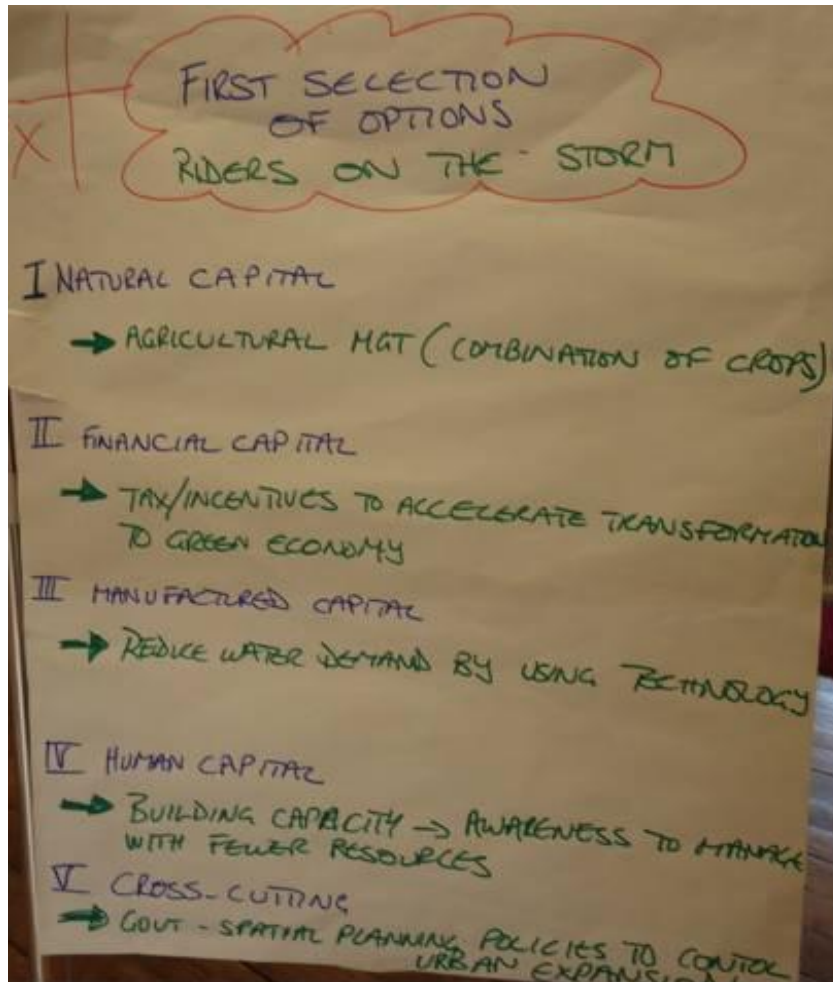 X
FIRST SELECTION
OF OPTIONS
RIDERS ON THE STORM
I NATURAL CAPITAL
→ AGRICULTURAL MGT (COMBINATION OF CROPS)
II FINANCIAL CAPITAL
→ TAX/INCENTIVES TO ACCELERATE TRANSFORMATON
TO GREEN ECONOMY
III MANUFACTURED CAPITAL
→ REDUCE WATER DEMAND BY USING TECHNOLOGY
IV HUMAN CAPITAL
→ BUILDING CAPACITY → AWARENESS TO MANAGE
WITH FEWER RESOURCES
V CROSS-CUTTING
→ GOVT - SPATIAL PLANNING POLICIES TO CONTOL
URBAN EXPANSION